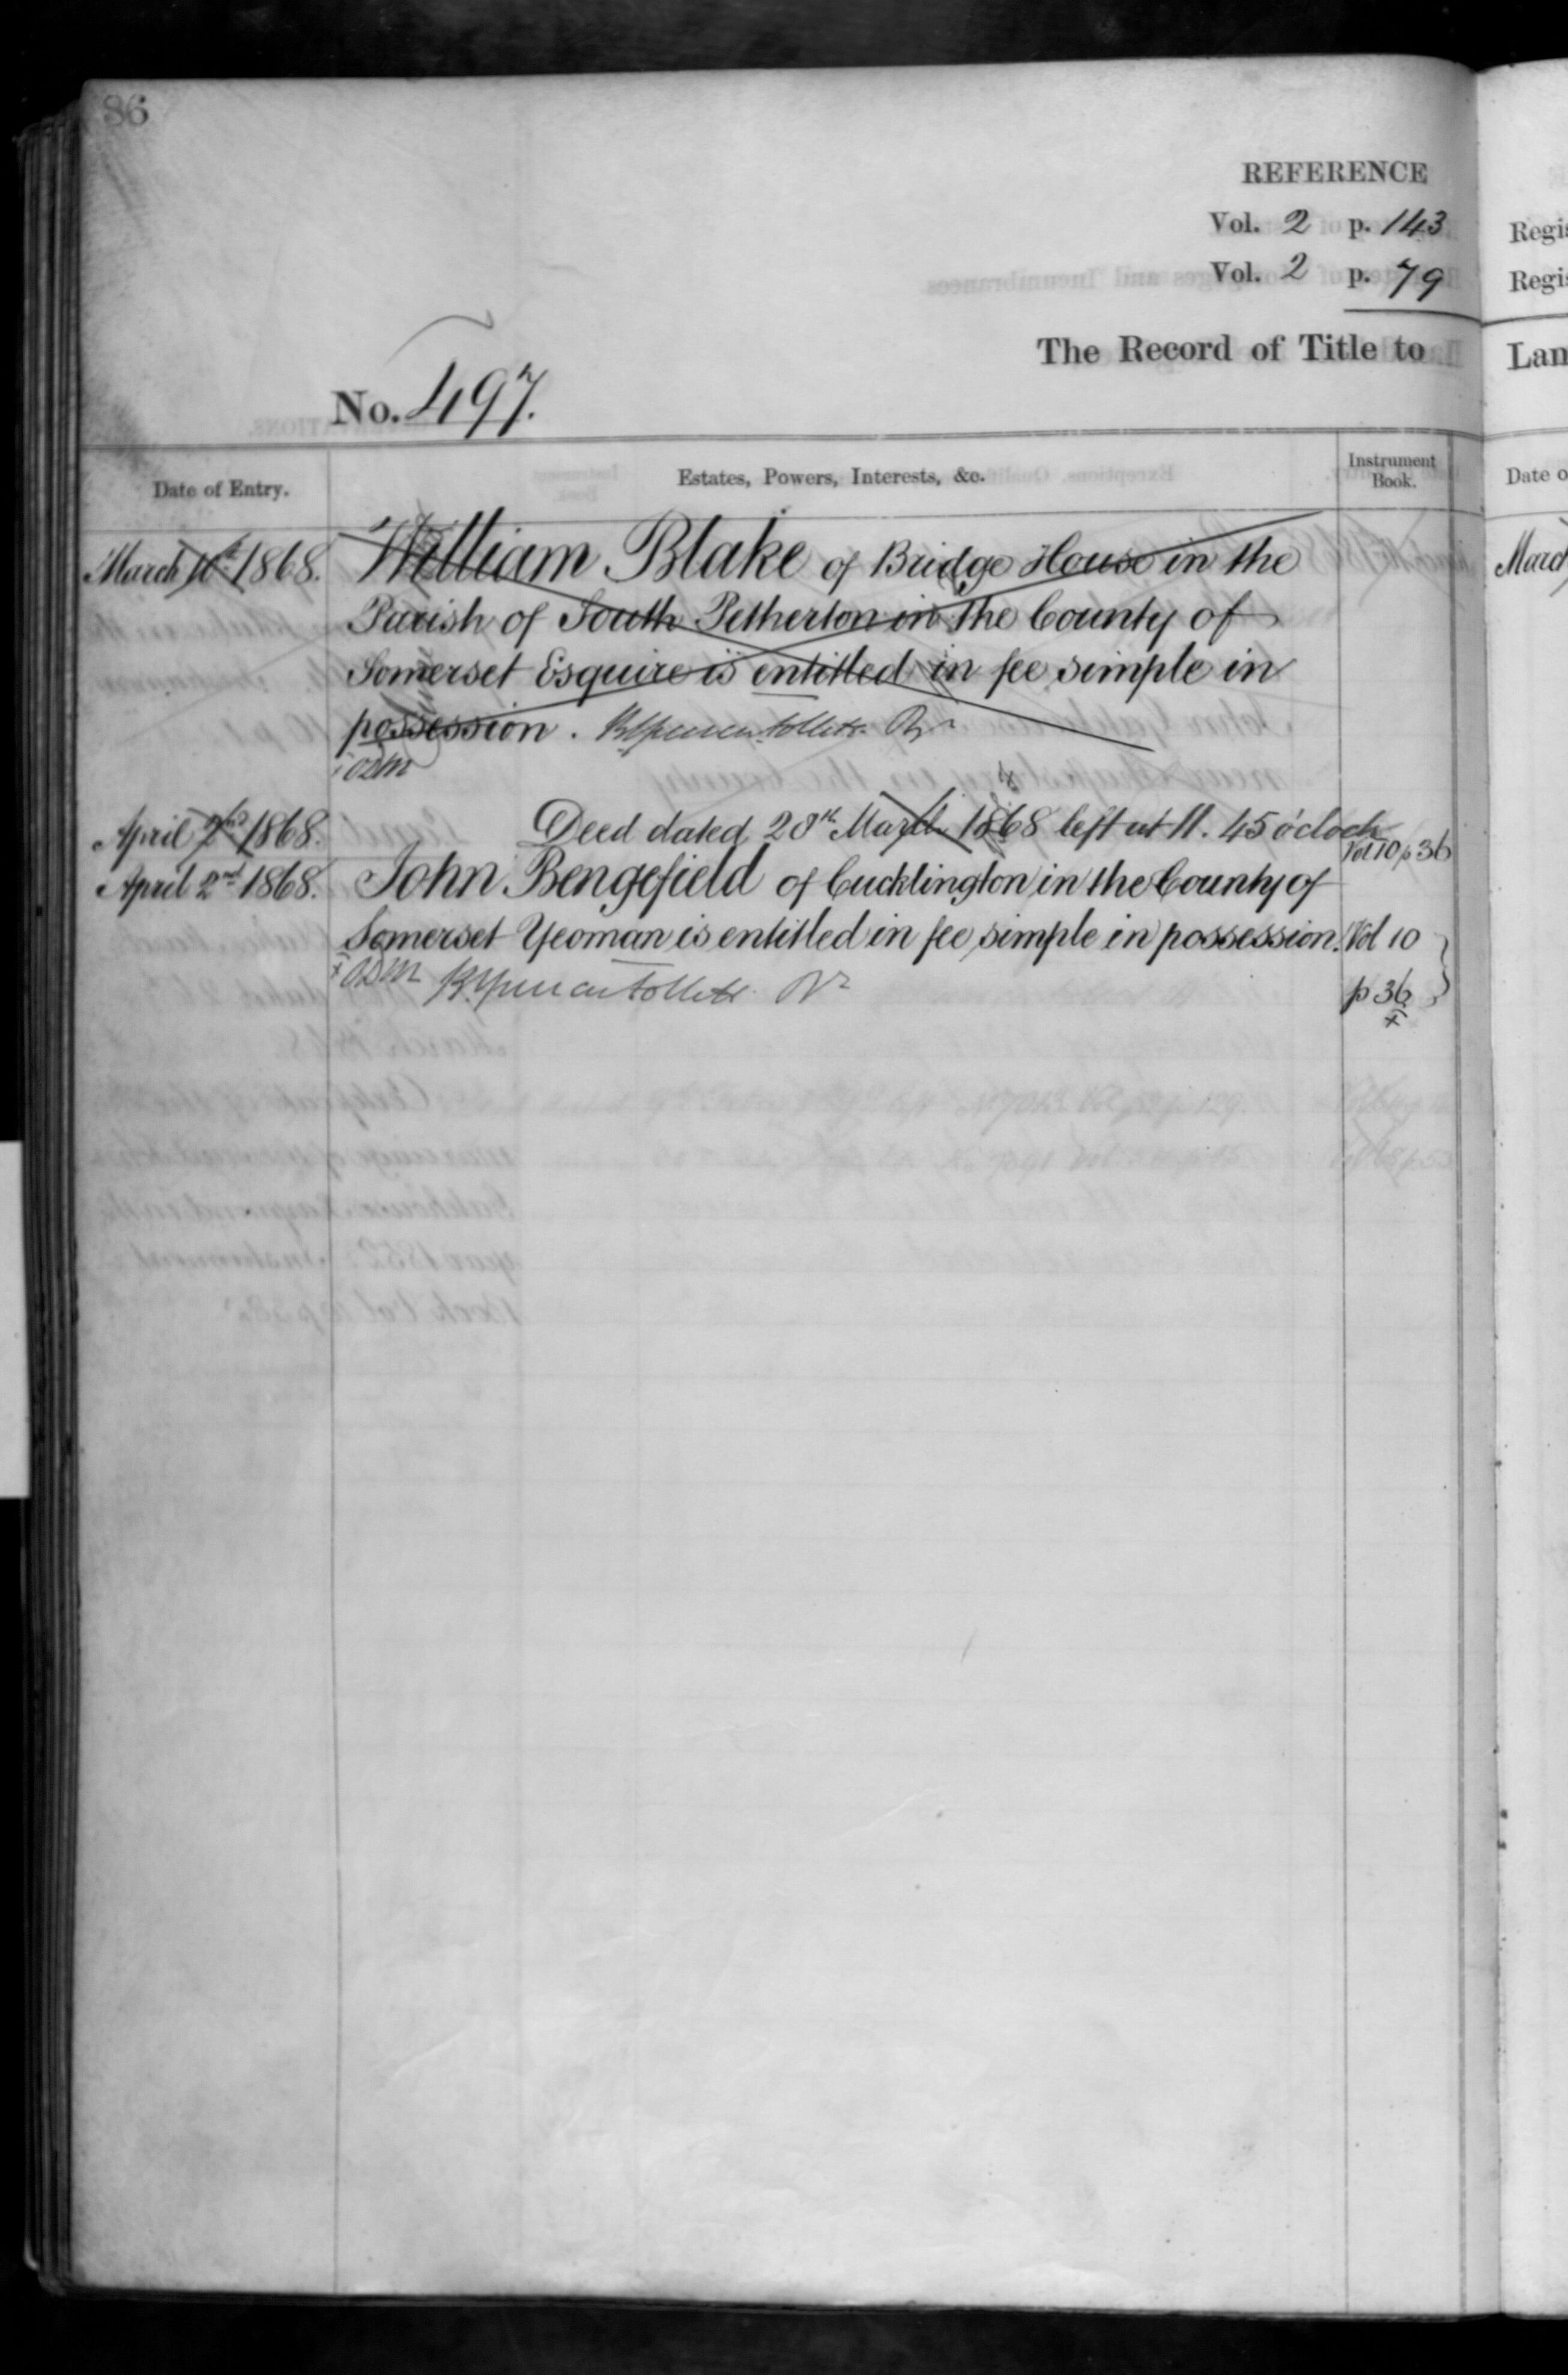 86
REFERENCE
Vol. 2 p. 143
Vol. 2 p. 79
The Record of Title to
No. 497.
Date of Entry.
Estates, Powers, Interests, &c.
Instrument Book.
March 10th 1868. William Blake of Bridge House in the
Parish of South Petherton in the County of
Somerset Esquire is entitled in fee simple in
possession.
April 2nd 1868. Deed dated 28th March 1868 left at 11.45 o'clock Vol 10 p 36
April 2nd 1868. John Bengefield of Cucklington in the County of
Somerset Yeoman is entitled in fee simple in possession. Vol 10
p 36
Regis
Regis
Lan
Date o
March